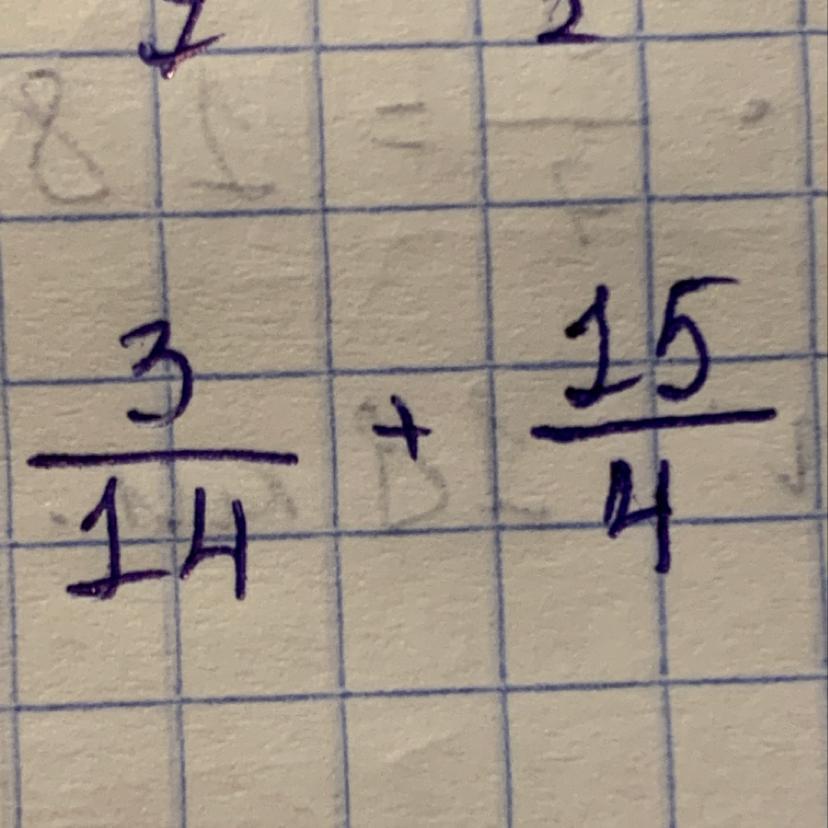 3/14 + 15/4